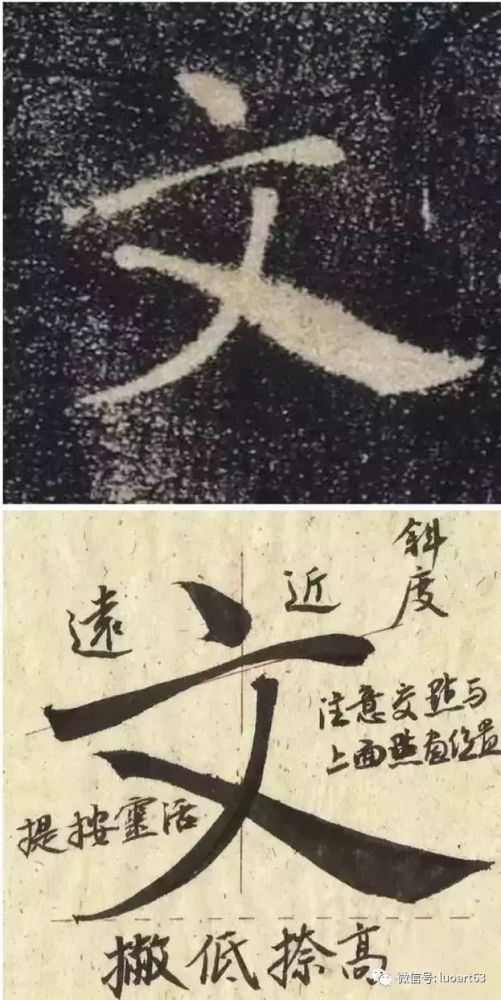 文
遠
近
斜度
文
注意交點与
上面點的位置
提按靈活
撇低捺高
微信号: luoart63